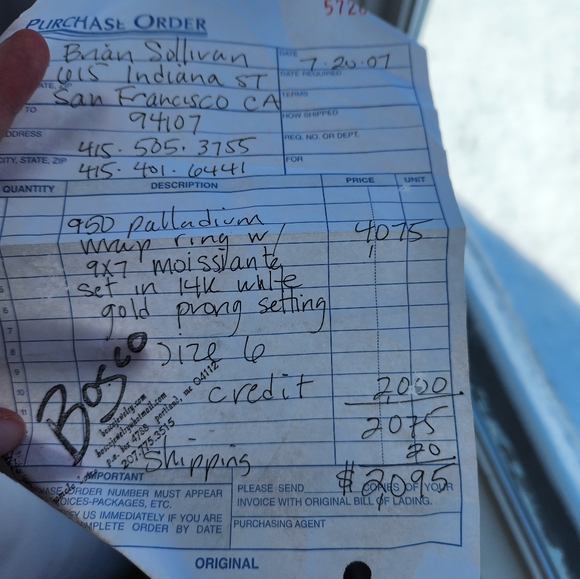 5728
PURCHASE ORDER
Brian Sollivan
DATE 7-20-07
615 Indiana ST
DATE REQUIRED
San Francisco CA
TERMS
TO 94107
HOW SHIPPED
ADDRESS 415. 505. 3755
REQ. NO. OR DEPT.
CITY, STATE, ZIP 415. 401. 6441
FOR
QUANTITY DESCRIPTION PRICE UNIT
950 palladium
wrap ring w/ 4075
9x7 moissianite
set in 14K white
gold prong setting
Size 6
credit 2000.
2075
Shipping 20
$2095
Bosco
boscojewelry.com
boscojewelry@hotmail.com
p.o. box 4788 portland, me 04112
207.775.3515
IMPORTANT
ORDER NUMBER MUST APPEAR
PACKAGES, ETC.
US IMMEDIATELY IF YOU ARE
COMPLETE ORDER BY DATE
PLEASE SEND COPIES OF YOUR
INVOICE WITH ORIGINAL BILL OF LADING.
PURCHASING AGENT
ORIGINAL